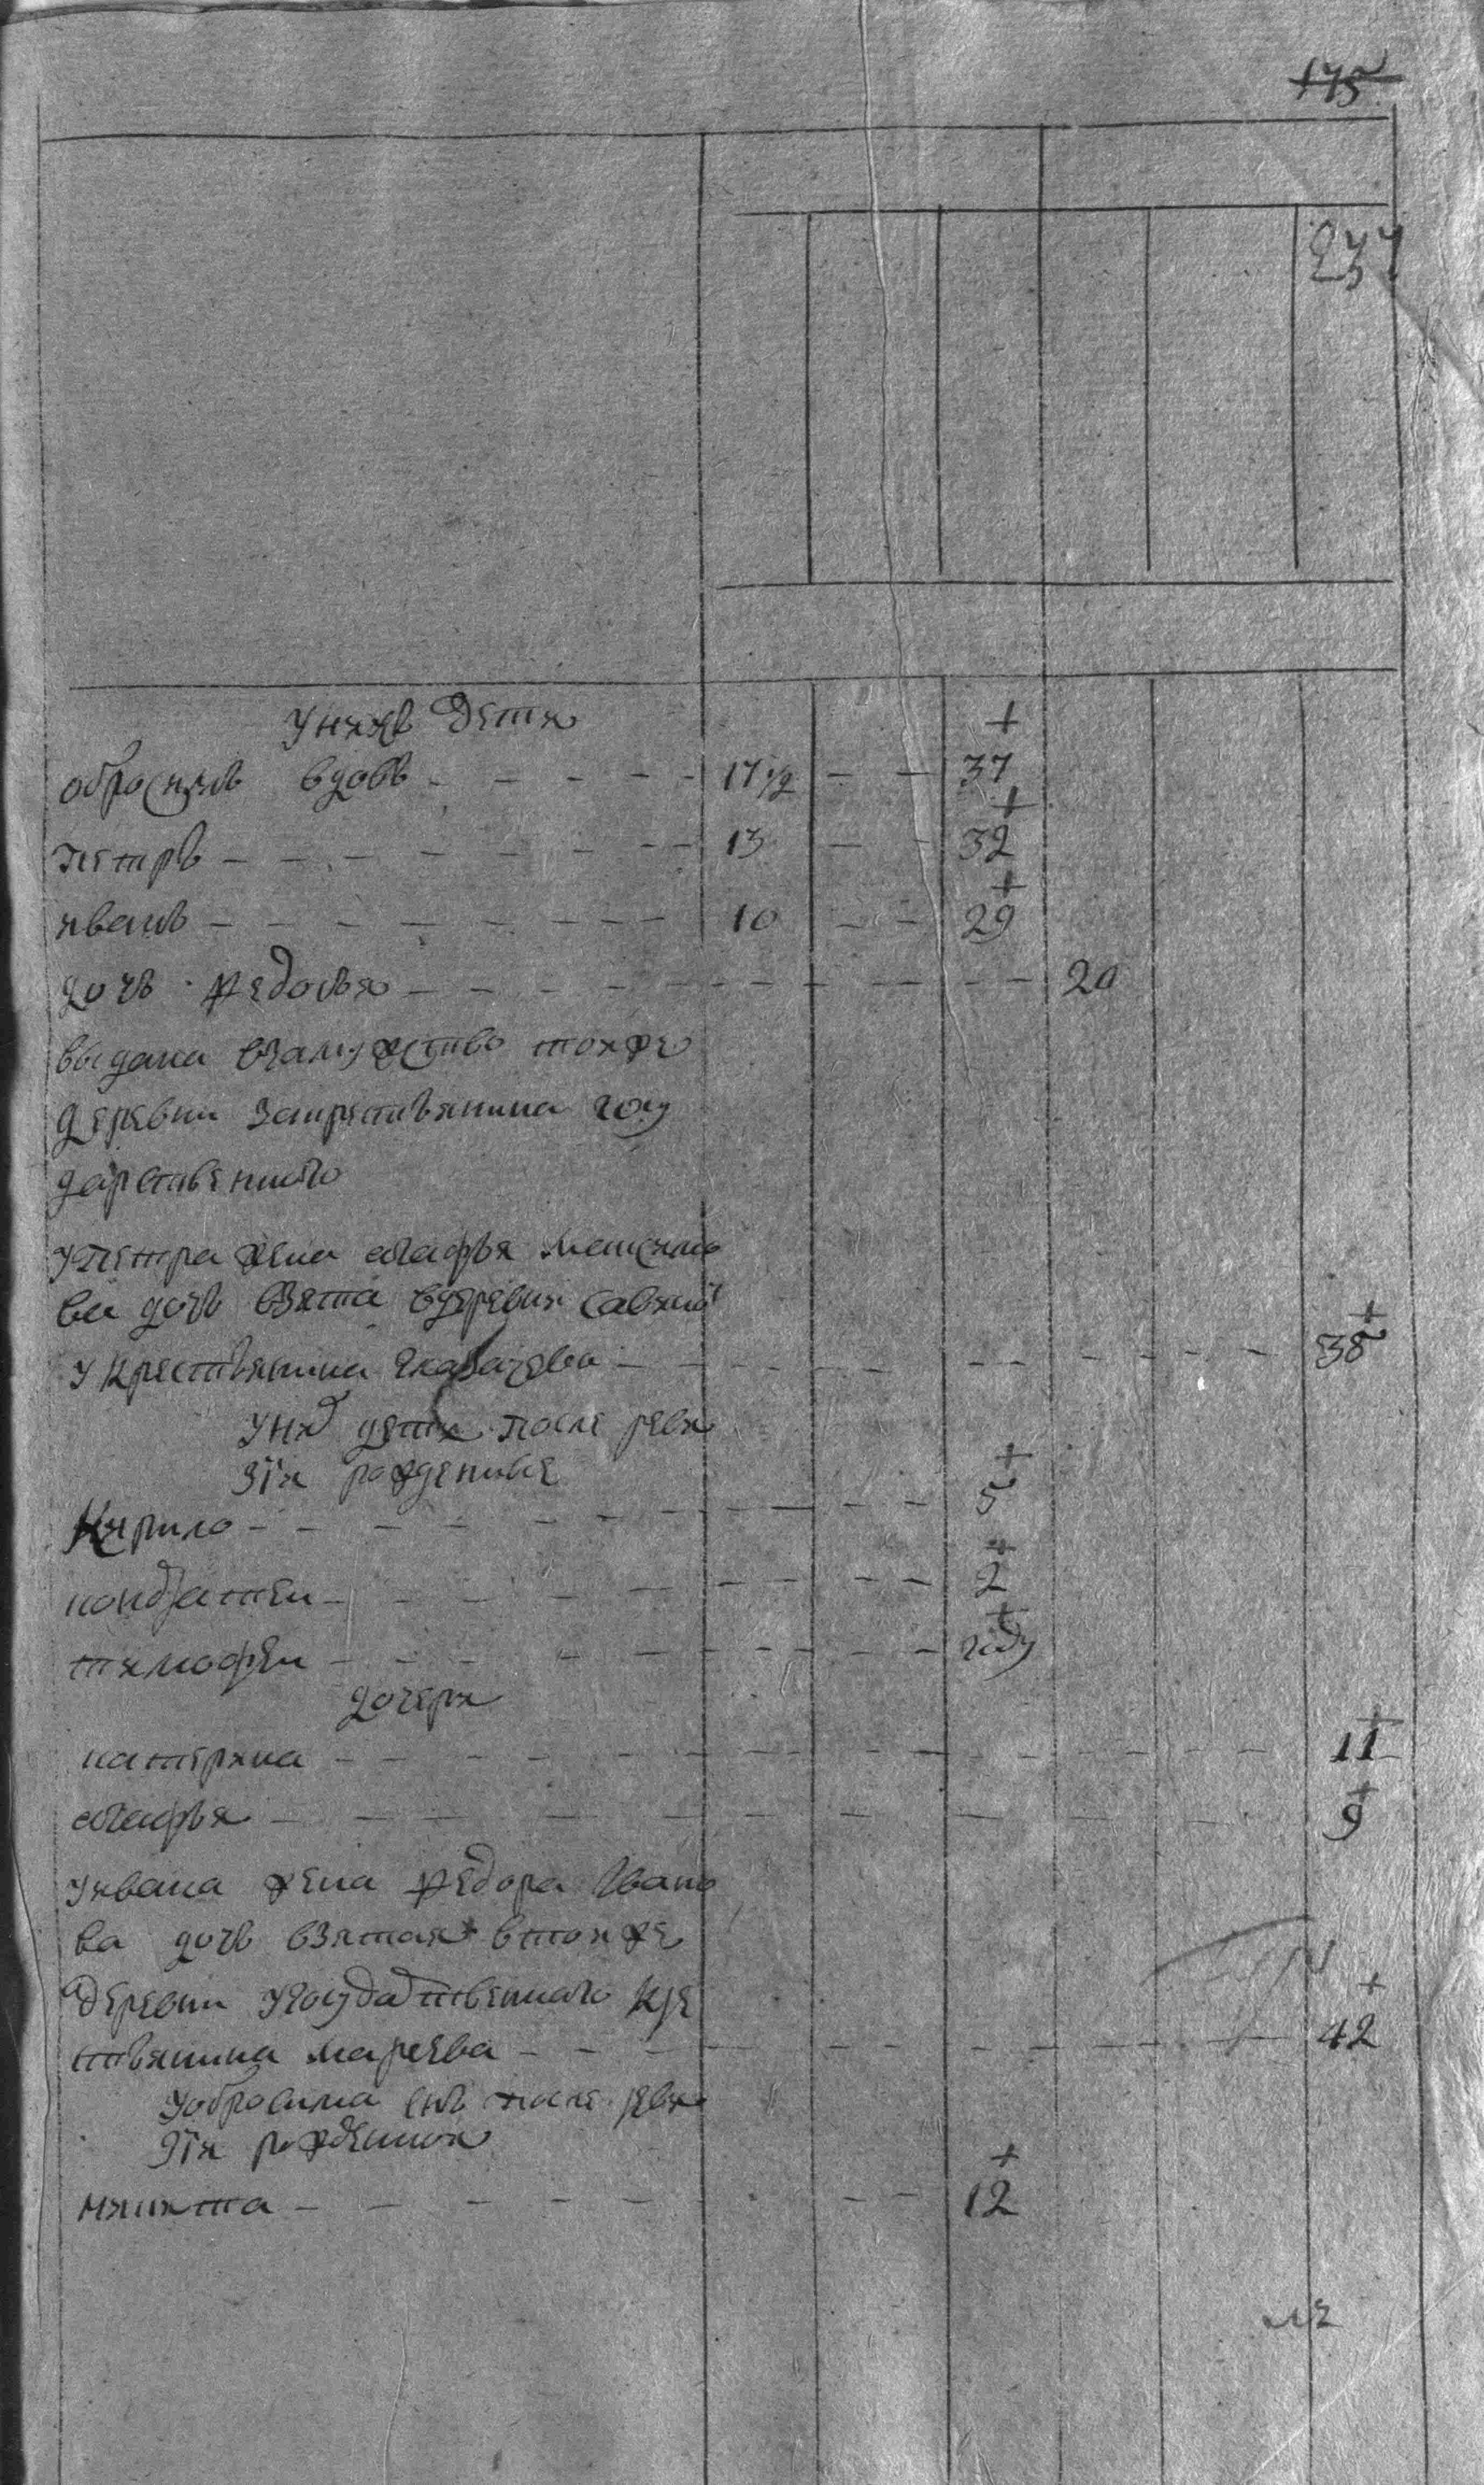 175
257
У них дети
обросимъ вдовъ - - - - - 17 1/2 - - + 37
петръ - - - - - - - 13 - - + 32
иванъ - - - - - - - 10 - - + 29
дочь федосья - - - - - - - - - 20
выдана взамужство тойже
деревни за крестьянина госу
дарственного
У петра жена агафья максимо
ва дочь взята вдеревни
у крестьянина - - - - - - - + 38
У них дети после реви
зїи рожденные
Кирило - - - - - - - - - + 5
кондратеи - - - - - - - - + 2
тимофеи - - - - - - - - + году
дочери
катерина - - - - - - - - - - - + 11
агафья - - - - - - - - - - + 9
У ивана жена федора Ивано
ва дочь взятая в тойже
деревни у государственного кре
стьянина мареева - - - - - - - - + 42
У обросима снъ после реви
зїи рожденной
никита - - - - - - - + 12